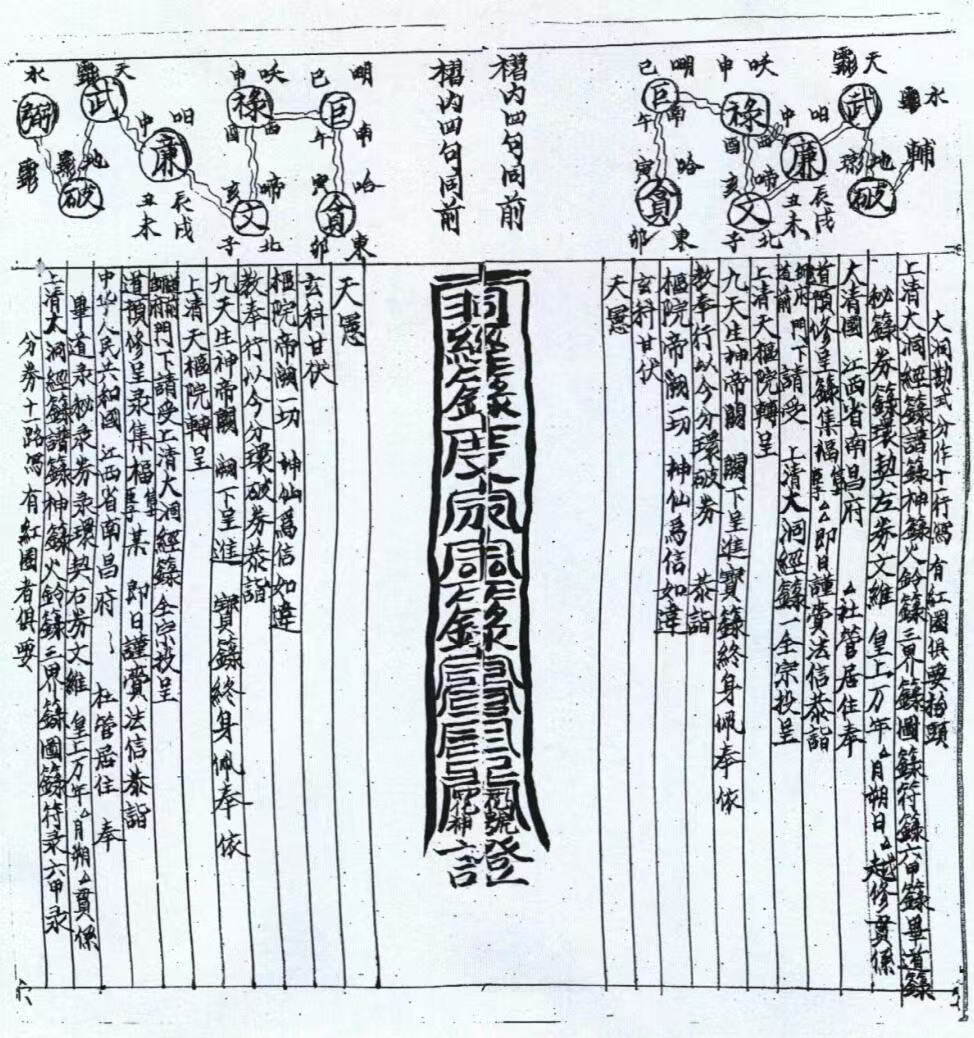 大洞勘式分作十行寫有紅圈俱要抬頭
上清大洞經籙諸籙神籙火鈴籙三界籙圖籙符籙六甲籙畢道籙
秘籙券籙環契左券文維 皇上万年厶月朔日厶越修貫係
大清國 江西省南昌府 厶社管居住奉
道預修呈籙集福 厶即日謹賫法信恭詣
門下請受 上清大洞經籙一全宗投呈
上清天樞院轉呈
九天生神帝闕 闕下呈進寶籙終身佩奉依
教奉行以今分環破券 恭詣
樞院帝闕一切 神仙為信如違
玄科甘伏
天憲
明 巳 巨 午 南
哈 寅 貪 卯 東
吠 申 祿 酉 西
啼 亥 文 子 北
中 吅 廉 辰戌 丑未
天 武
地 破
水 輔
褶内四句同前
褶内四句同前
明 巳 巨 午 南
哈 寅 貪 卯 東
吠 申 祿 酉 西
啼 亥 文 子 北
中 吅 廉 辰戌 丑未
天 武
地 破
水 弼
號 證
神
天憲
玄科甘伏
樞院帝闕一切 神仙為信如違
教奉行以今分環破券恭詣
九天生神帝闕 闕下呈進 寶籙終身佩奉依
上清天樞院轉呈
門下請受上清大洞經籙全宗投呈
道預修呈录集福 某 即日謹賫法信恭詣
中华人民共和國 江西省南昌府 社管居住 奉
畢道录秘录券录環契右券文維 皇上万年厶月朔厶貫係
上清大洞經籙諸籙神籙火鈴籙三界籙圖籙符录六甲录
分券十一路寫有紅圈者俱要